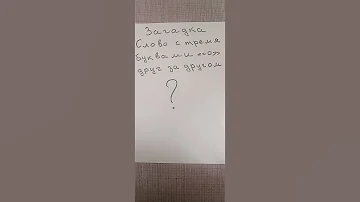 Загадка
Слово с тремя
буквами «о»
друг за другом
?